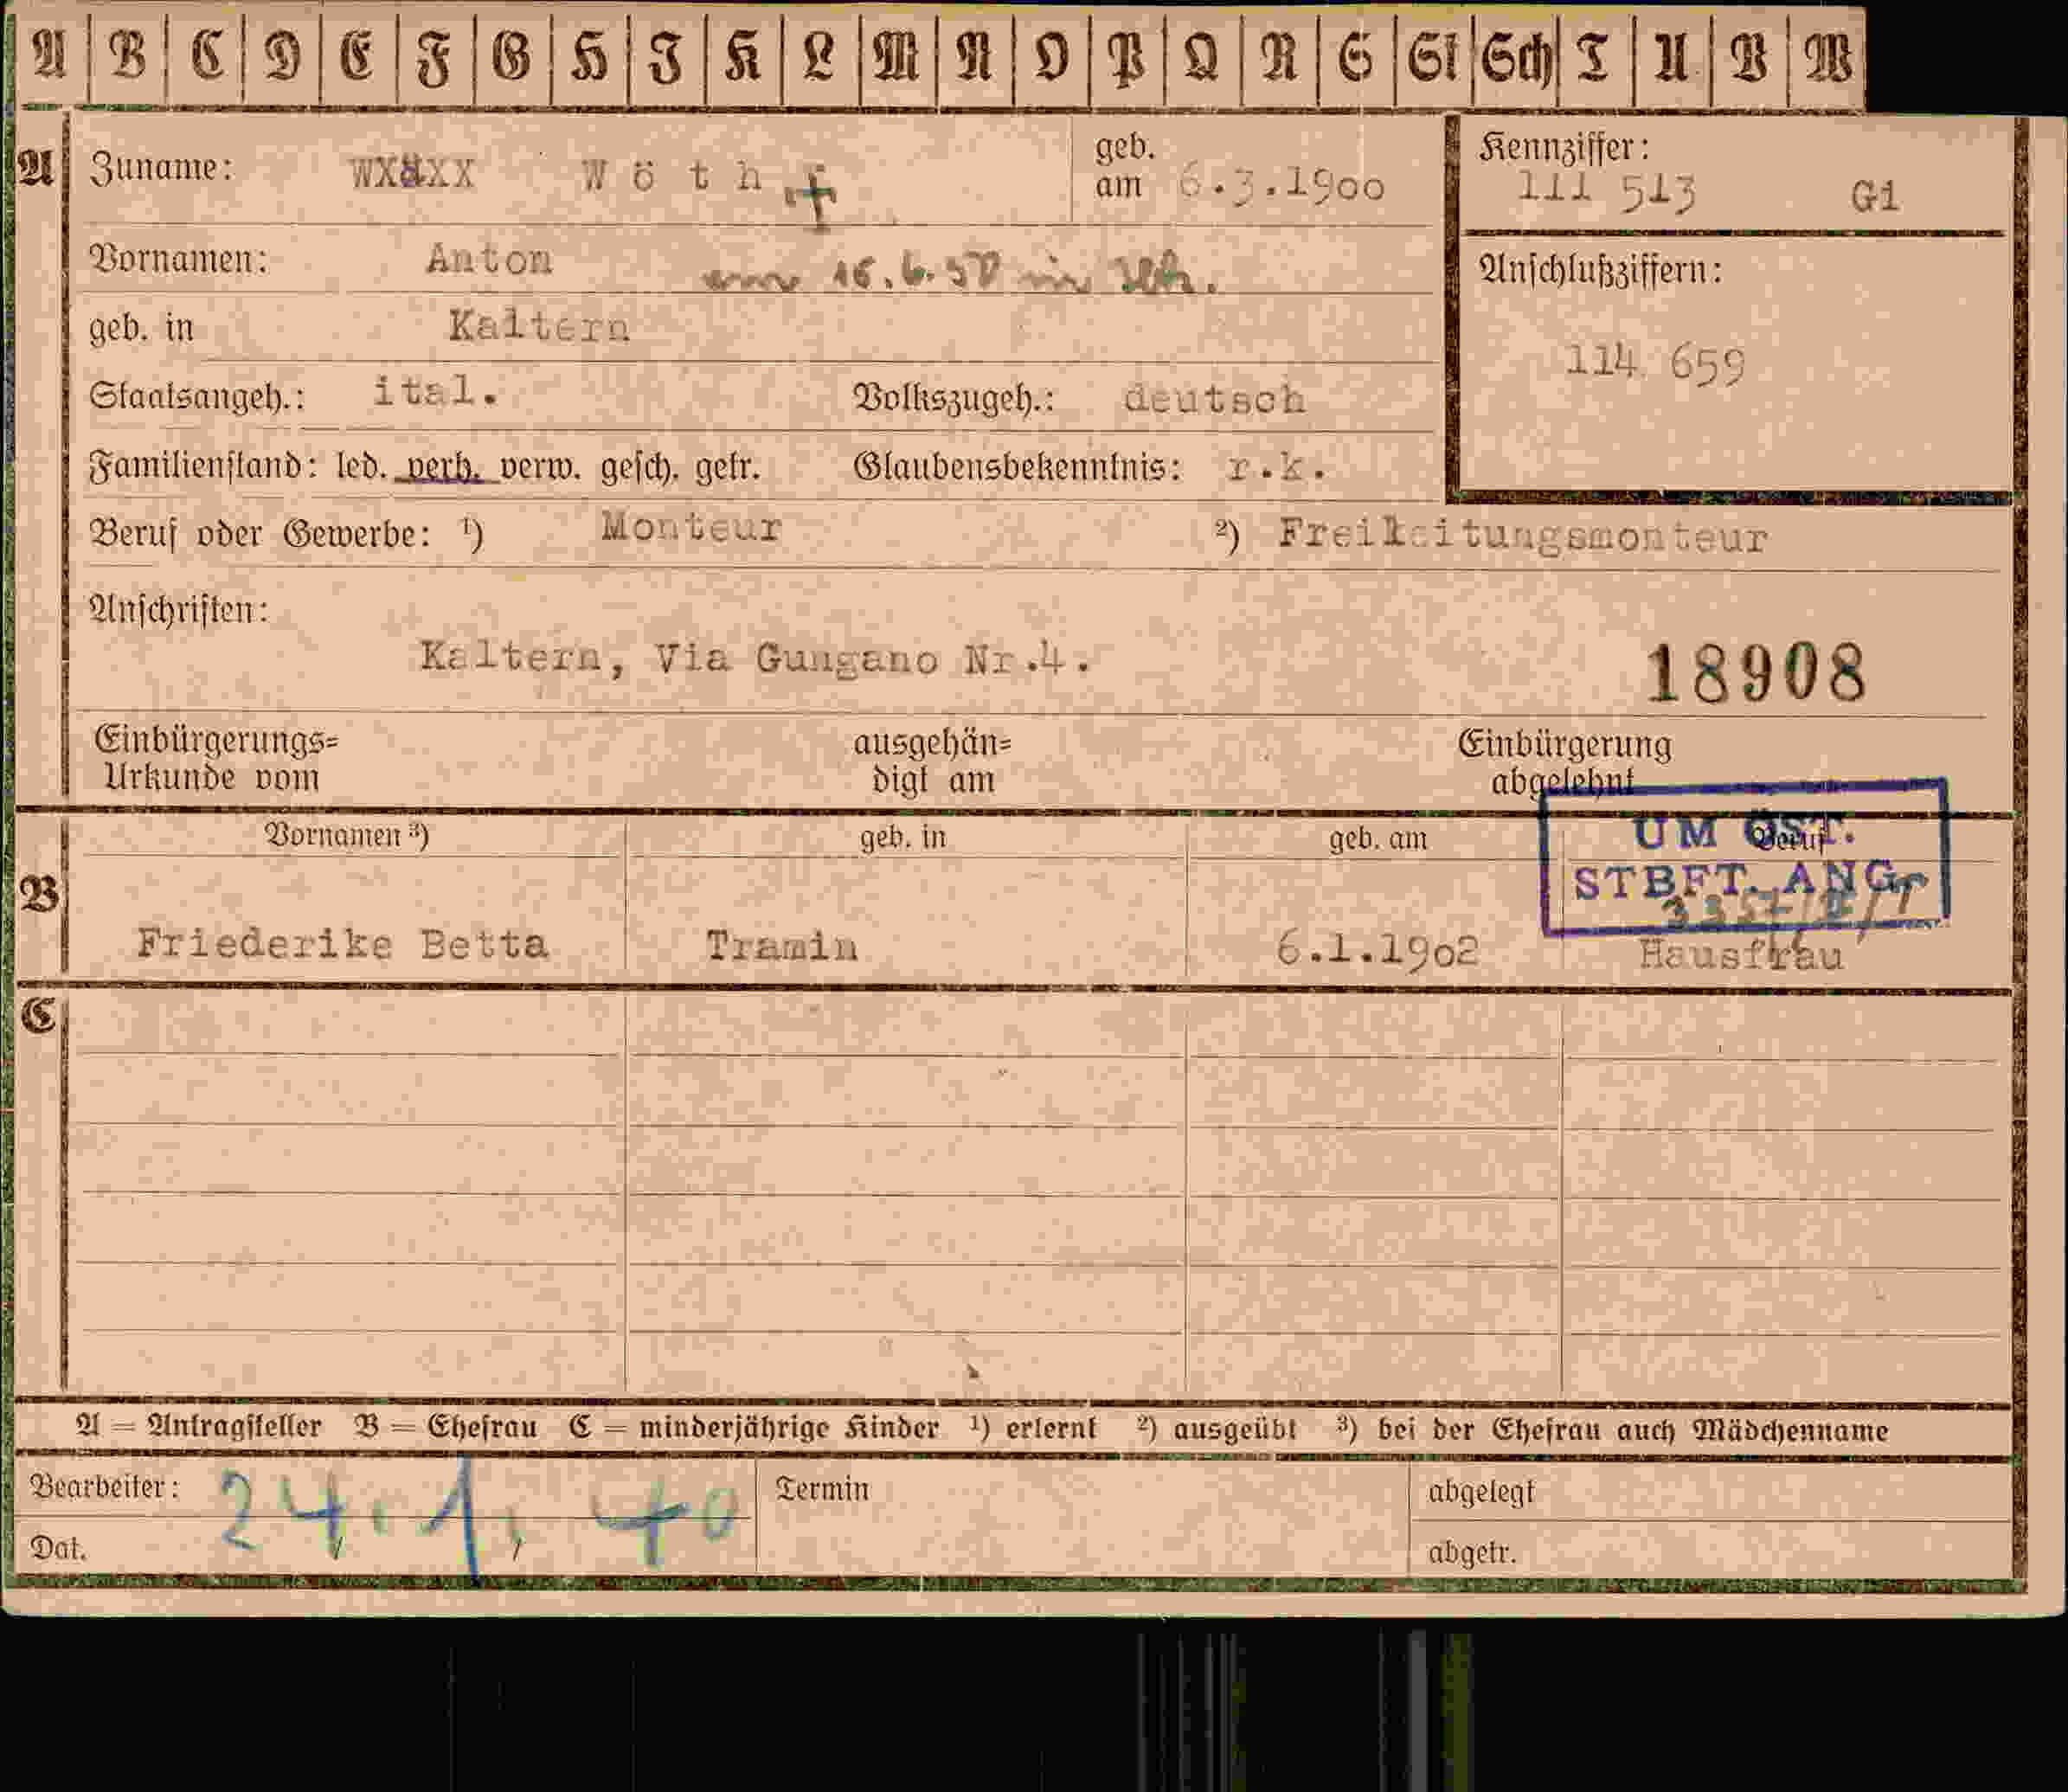 A B C D E F G H J K L M N O P Q R S St Sch T U V W
A
Zuname: Wöth +
geb. am 6.3.1900
Kennziffer:
111 513 Gi
Vornamen: Anton
am 16.6.50 in
Anschlußziffern:
114 659
geb. in Kaltern
Staatsangeh.: ital. Volkszugeh.: deutsch
Familienstand: led. verh. verw. gesch. getr. Glaubensbekenntnis: r.k.
Beruf oder Gewerbe: ¹) Monteur ²) Freileitungsmonteur
Anschriften:
Kaltern, Via Gungano Nr.4.
18908
Einbürgerungs=
Urkunde vom
ausgehän=
digt am
Einbürgerung
abgelehnt
UM ÖST.
STBFT. ANG.
B
Vornamen ³) geb. in geb. am Beruf
Friederike Betta Tramin 6.1.1902 Hausfrau
C
A = Antragsteller B = Ehefrau C = minderjährige Kinder ¹) erlernt ²) ausgeübt ³) bei der Ehefrau auch Mädchenname
Bearbeiter:
Dat. 24.1.40
Termin
abgelegt
abgetr.